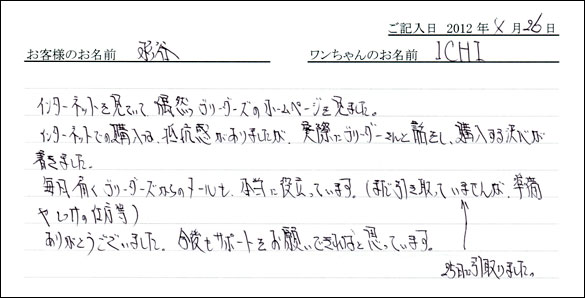 ご記入日 2012年 4月 26日
お客様のお名前 水谷 ワンちゃんのお名前 ICHI
インターネットを見ていて 偶然 ブリーダーズのホームページを見ました。
インターネットでの購入は、抵抗感がありましたが、実際にブリーダーさんと話をし、購入する決心が
着きました。
毎月 届く ブリーダーズからのメールも、本当に役立っています。(まだ引き取っていませんが、準備
や しつけの仕方等)
ありがとうございました。今後もサポートをお願いできればと思っています。
25日に引取りました。